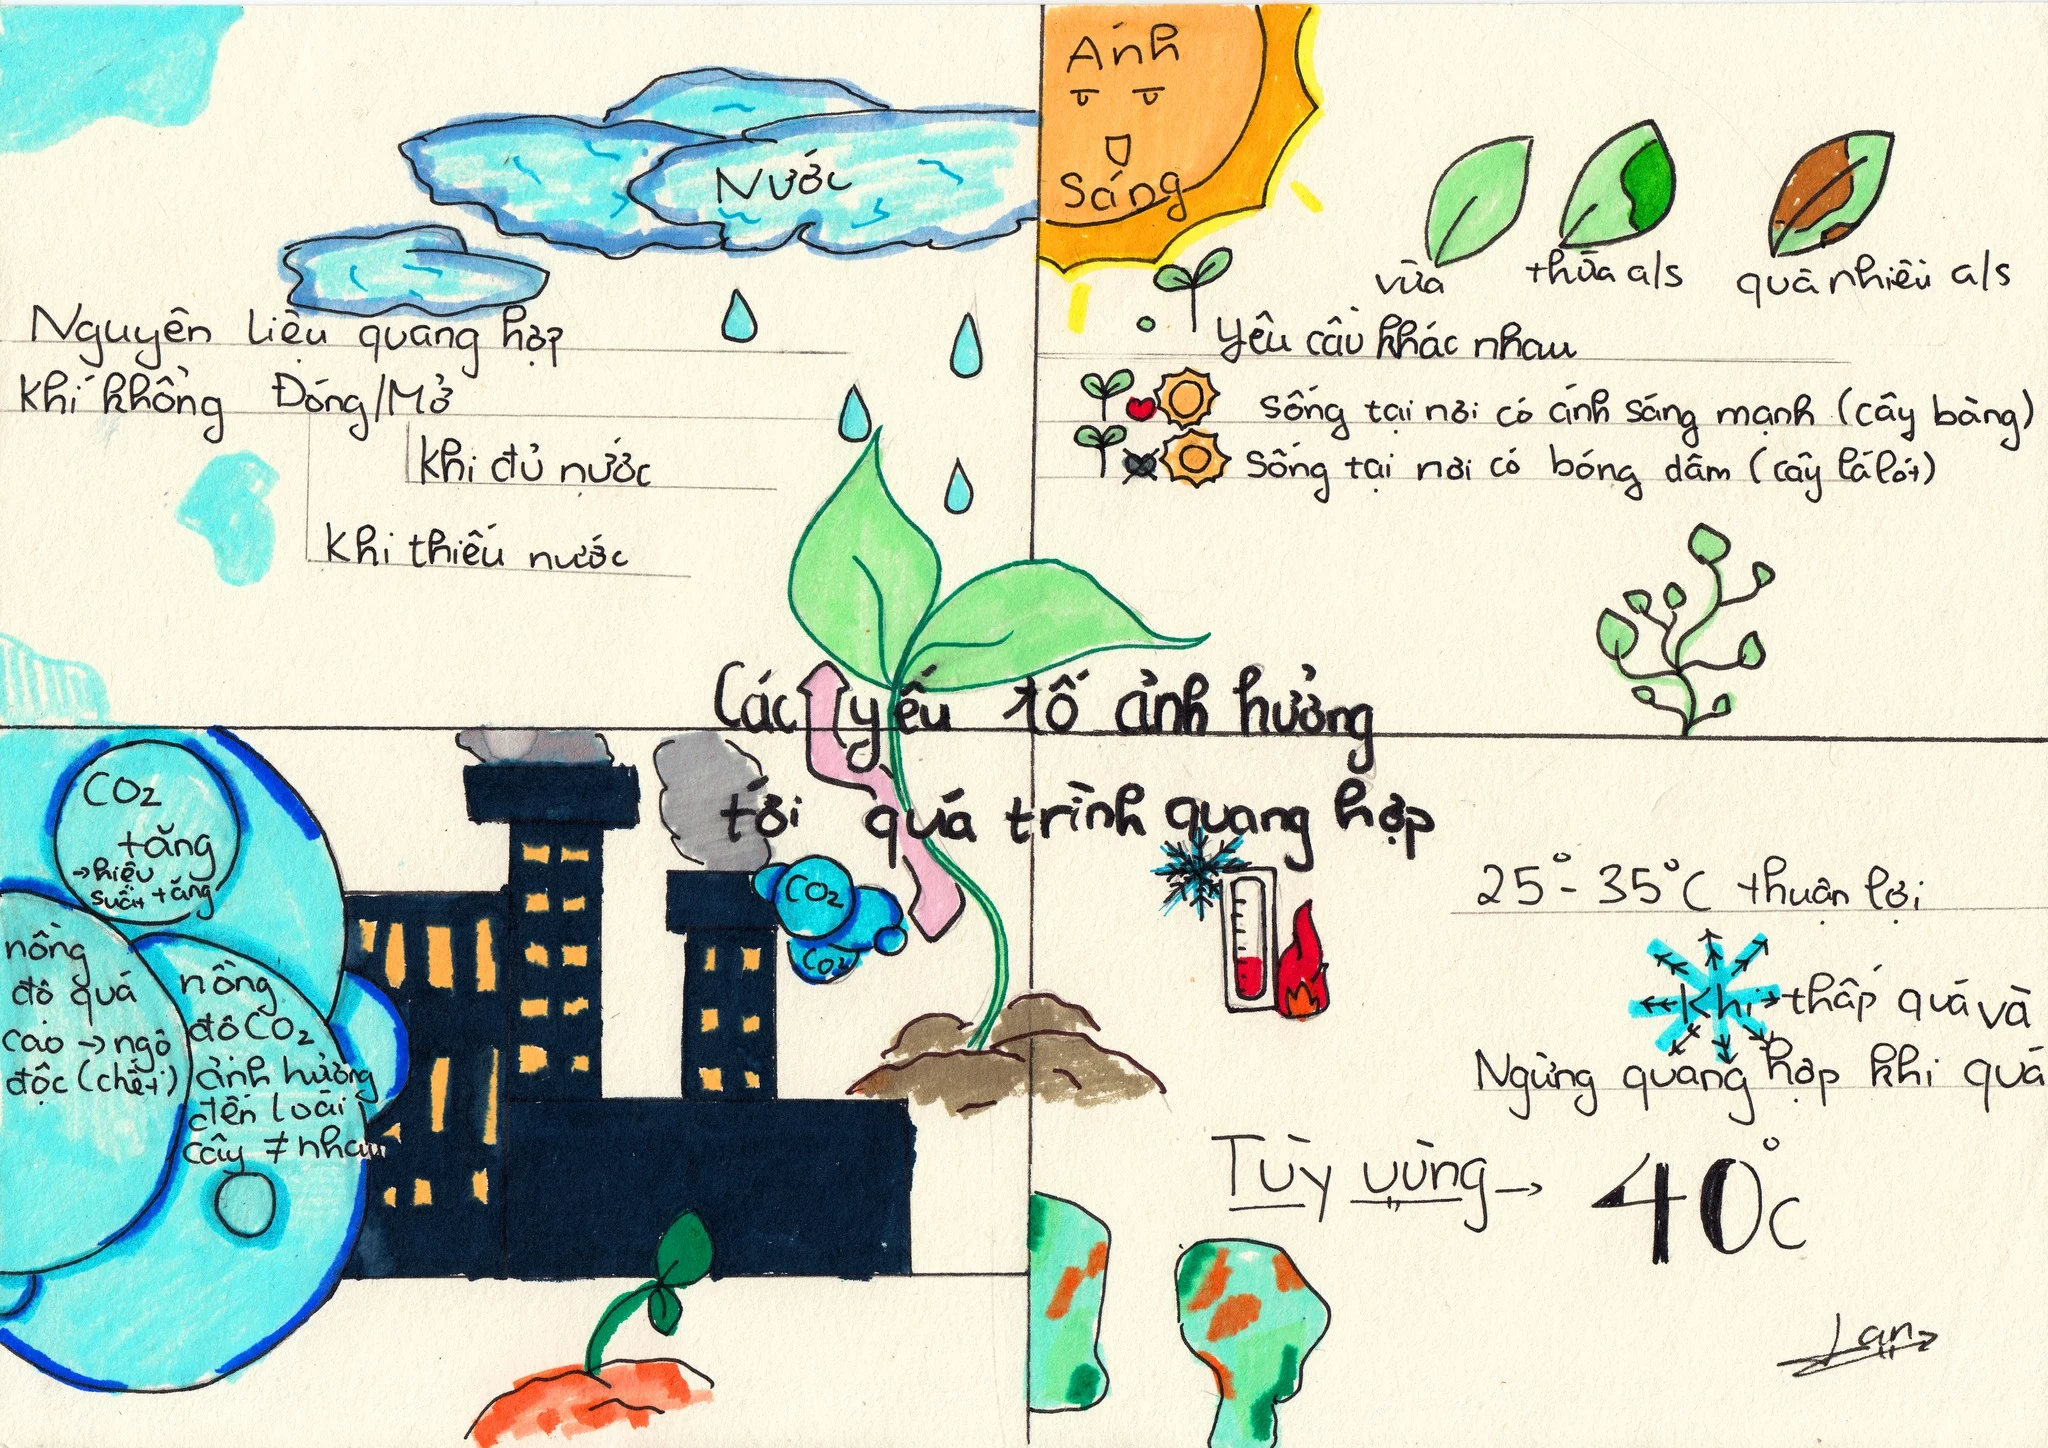 Nước
Nguyên liệu quang hợp
Khí khổng Đóng/Mở
Khi đủ nước
Khi thiếu nước
Ánh
Sáng
vừa
thừa a/s
quá nhiều a/s
Yêu cầu khác nhau
Sống tại nơi có ánh sáng mạnh (cây bàng)
Sống tại nơi có bóng dâm (cây lá lót)
Các yếu tố ảnh hưởng
tới quá trình quang hợp
CO2
tăng
→ hiệu
suất tăng
nồng
độ quá
cao → ngộ
độc (chết)
nồng
độ CO2
ảnh hưởng
đến loài
cây ≠ nhau
CO2
CO2
25° - 35°C thuận lợi
Khi thấp quá và
Ngừng quang hợp khi quá
Tùy vùng →
40°C
Lan